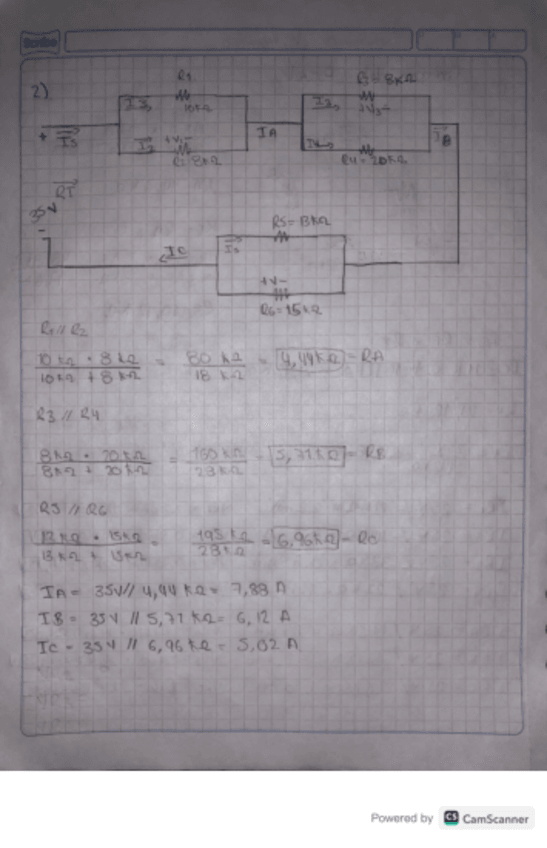 Scribe
2)
R1
10KΩ
R3=8KΩ
I3
+V3-
IA
IB
+
IS
I2
+V-
R2=8KΩ
R4=20KΩ
RT
35V
-
R5=13KΩ
IC
+V-
R6=15KΩ
R1 // R2
10 KΩ * 8 KΩ / 10KΩ + 8 KΩ = 80 KΩ / 18 KΩ = 4,44KΩ = RA
R3 // R4
8KΩ * 20KΩ / 8KΩ + 20KΩ = 160 KΩ / 28KΩ = 5,71KΩ = RB
R5 // R6
13KΩ * 15KΩ / 13 KΩ + 15KΩ = 195 KΩ / 28KΩ = 6,96KΩ = RC
IA = 35V // 4,44 KΩ = 7,88 A
IB = 35V // 5,71 KΩ = 6,12 A
IC = 35V // 6,96 KΩ = 5,02 A
Powered by CS CamScanner